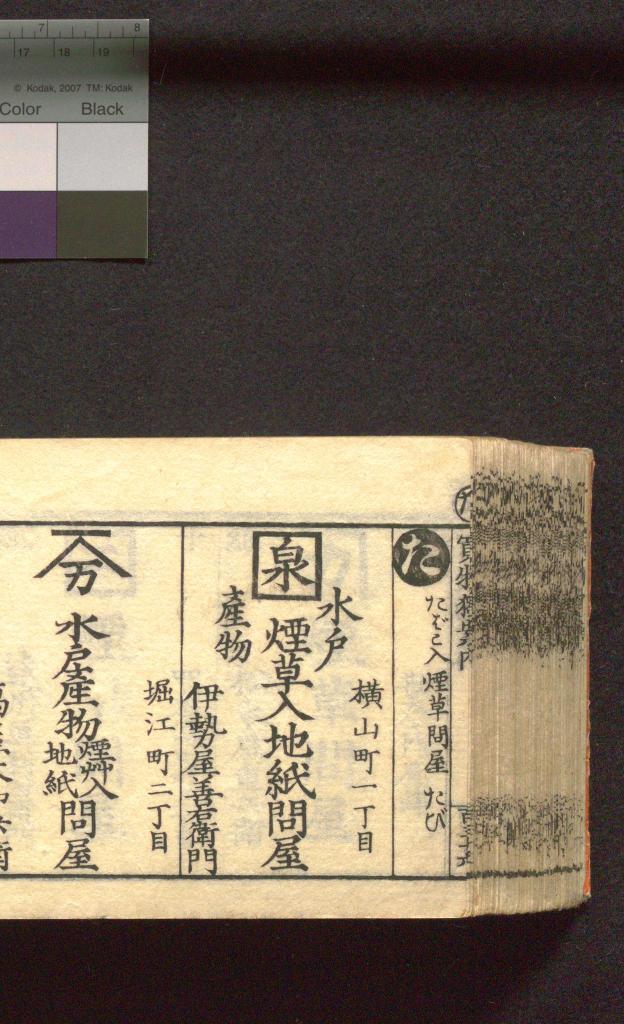 7 8
17 18 19
© Kodak, 2007 TM: Kodak
Color Black
た
たばこ入 煙草問屋 たび
横山町一丁目
水戸
泉
煙草入地紙問屋
産物
伊勢屋善右衛門
堀江町二丁目
万
水戸産物煙艸入地紙問屋